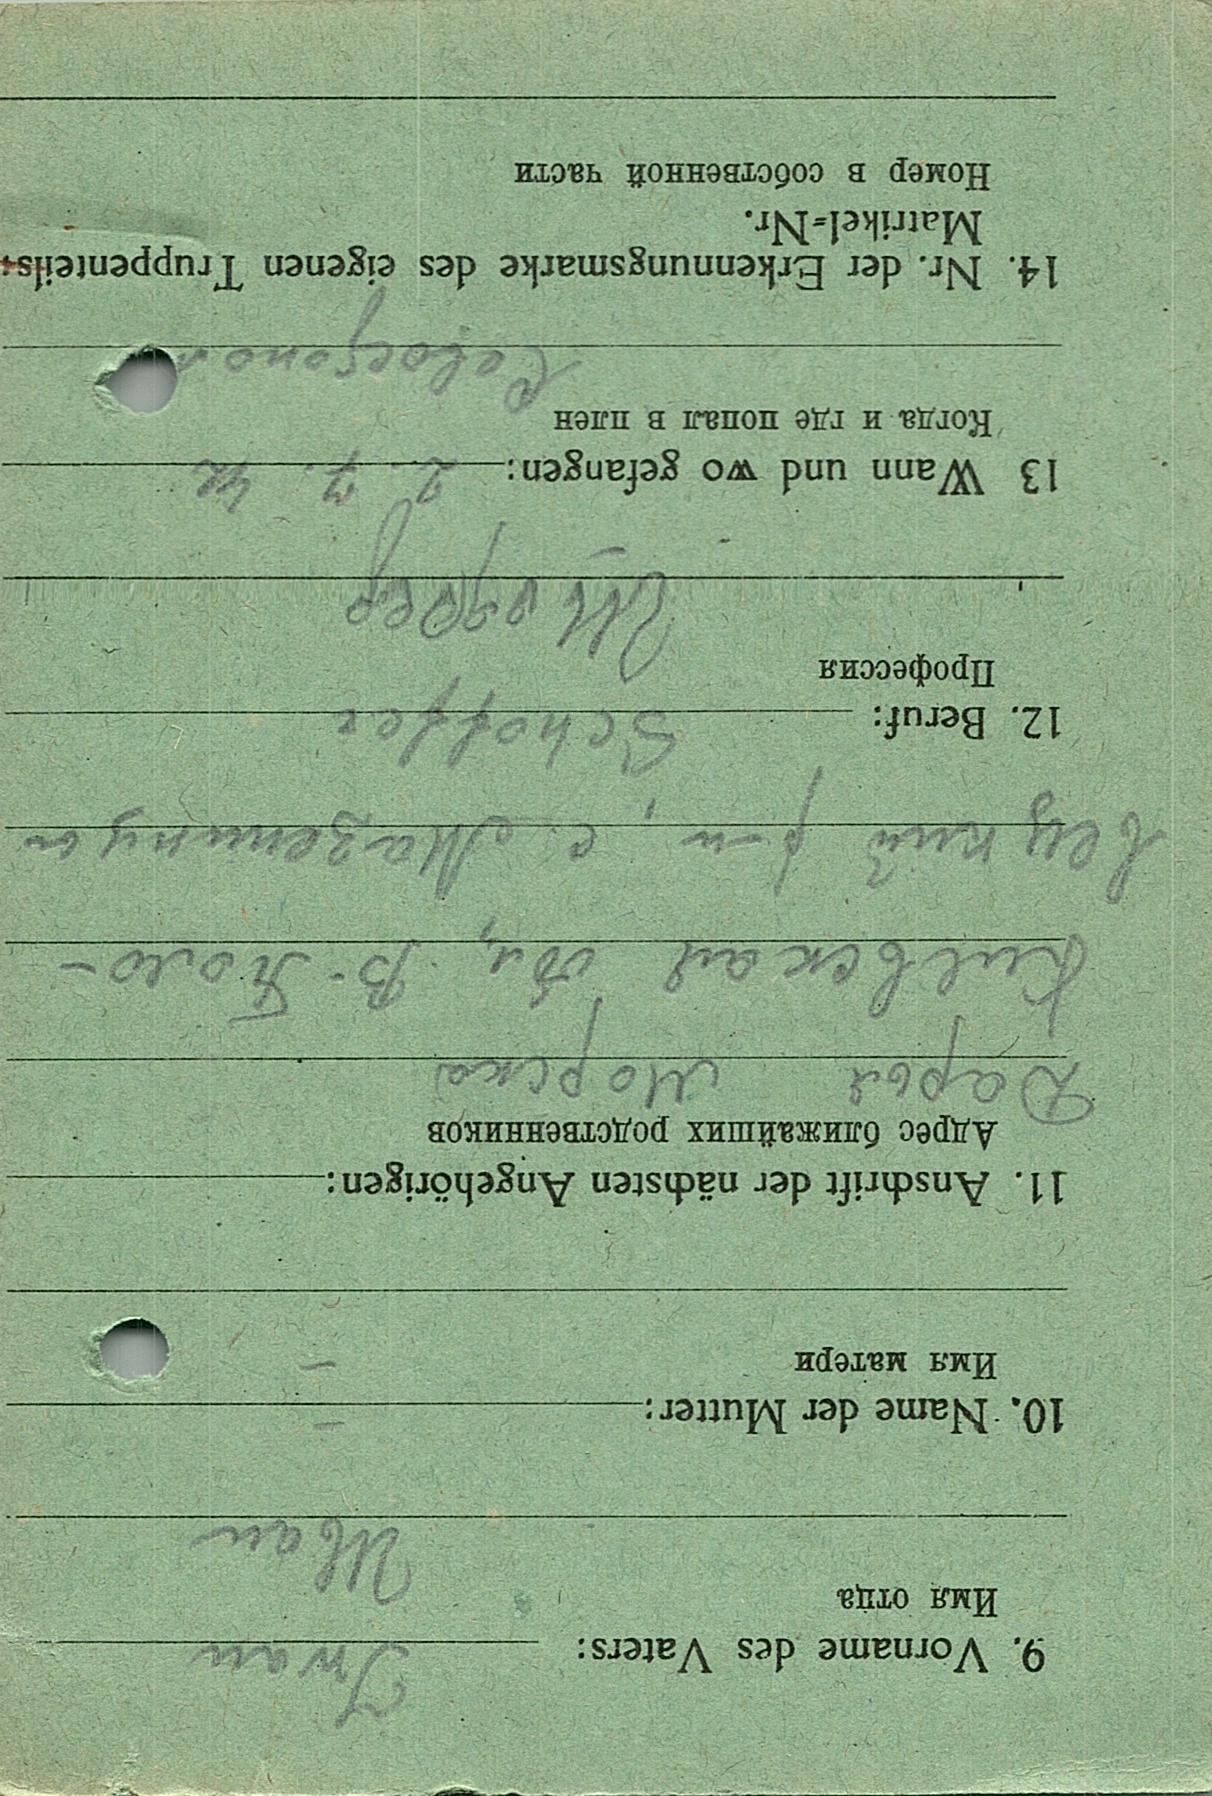 9. Vorname des Vaters: Iwan
Имя отца
Иван
10. Name der Mutter: –
Имя матери –
11. Anschrift der nächsten Angehörigen:
Адрес ближайших родственников
Дарья Морска
Киевская обл, В-Поло-
вецкий р-н, с.
12. Beruf: Schoffer
Профессия
Шофер
13 Wann und wo gefangen: 2. 7. 42
Когда и где попал в плен
Севастопол
14. Nr. der Erkennungsmarke des eigenen Truppenteils:
Matrikel-Nr.
Номер в собственной части